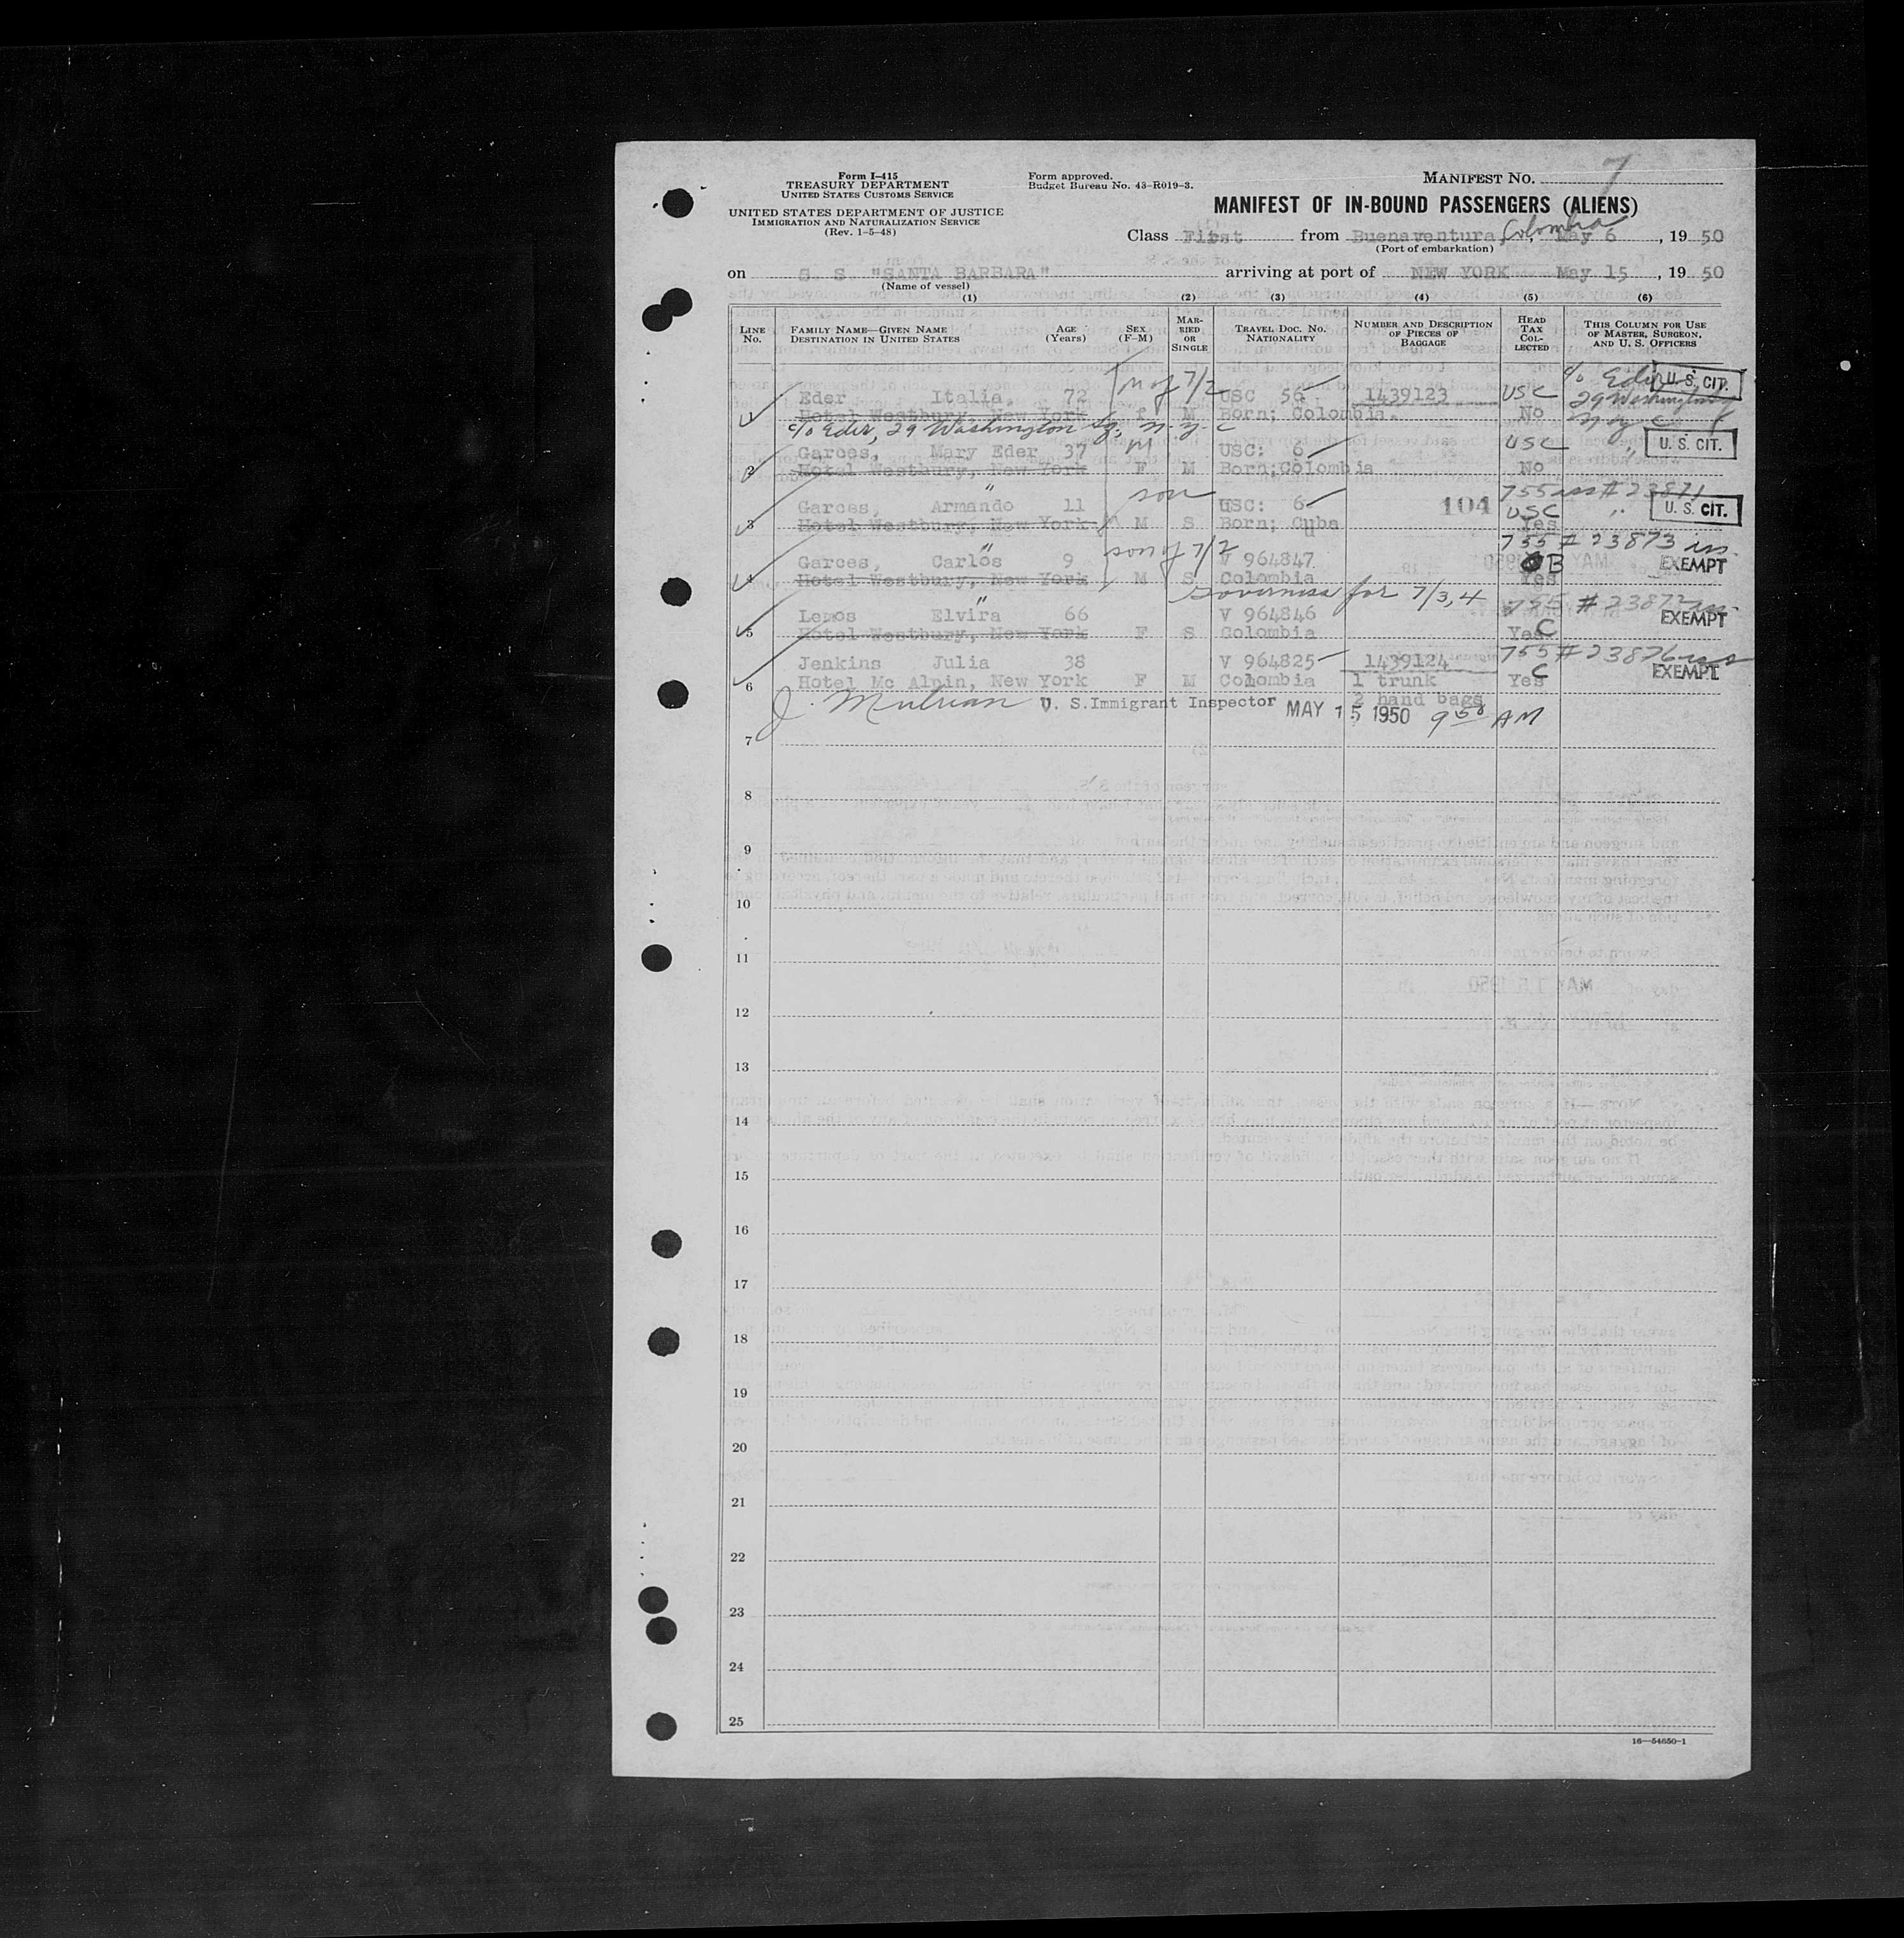 Form I-415
TREASURY DEPARTMENT
UNITED STATES CUSTOMS SERVICE
UNITED STATES DEPARTMENT OF JUSTICE
IMMIGRATION AND NATURALIZATION SERVICE
(Rev. 1-5-48)
Form approved.
Budget Bureau No. 43-R019-3.
MANIFEST NO. 7
MANIFEST OF IN-BOUND PASSENGERS (ALIENS)
Class First from Buenaventura, Colombia May 6, 19 50
(Port of embarkation)
on S. S. "SANTA BARBARA" arriving at port of NEW YORK May 15, 19 50
(Name of vessel)
(1) (2) (3) (4) (5) (6)
LINE No. FAMILY NAME—GIVEN NAME DESTINATION IN UNITED STATES AGE (Years) SEX (F-M) MARRIED OR SINGLE TRAVEL DOC. NO. NATIONALITY NUMBER AND DESCRIPTION OF PIECES OF BAGGAGE HEAD TAX COLLECTED THIS COLUMN FOR USE OF MASTER, SURGEON, AND U. S. OFFICERS
M of 7/2 c/o Eder U. S. CIT.
Eder Italia, 72 USC 56 1439123 USC 29 Washington
1 Hotel Westbury, New York f M Born; Colombia. No N.Y.C
c/o Eder, 29 Washington Sq. N.Y.C
Garces, Mary Eder 37 M USC: 6 USC " U. S. CIT.
2 Hotel Westbury, New York F M Born;Colombia No
" son 755 ins # 23871
Garces, Armando 11 USC: 6 104 USC " U. S. CIT.
3 Hotel Westbury, New York. M S Born; Cuba Yes
" sons of 7/2 755 # 23873 ins
Garces, Carlos 9 V 964847 B EXEMPT
4 Hotel Westbury, New York M S Colombia Yes
" Governess for 7/3,4 755 # 23872 ins
Lemos Elvira 66 V 964846 EXEMPT
5 Hotel Westbury, New York F S Colombia Yes C
Jenkins Julia 38 V 964825 1439124 755 # 23876 ins
6 Hotel Mc Alpin, New York F M Colombia 1 trunk Yes C EXEMPT
U. S. Immigrant Inspector MAY 15 1950 2 hand bags 9 50 AM
7
8
9
10
11
12
13
14
15
16
17
18
19
20
21
22
23
24
25
16—54650-1